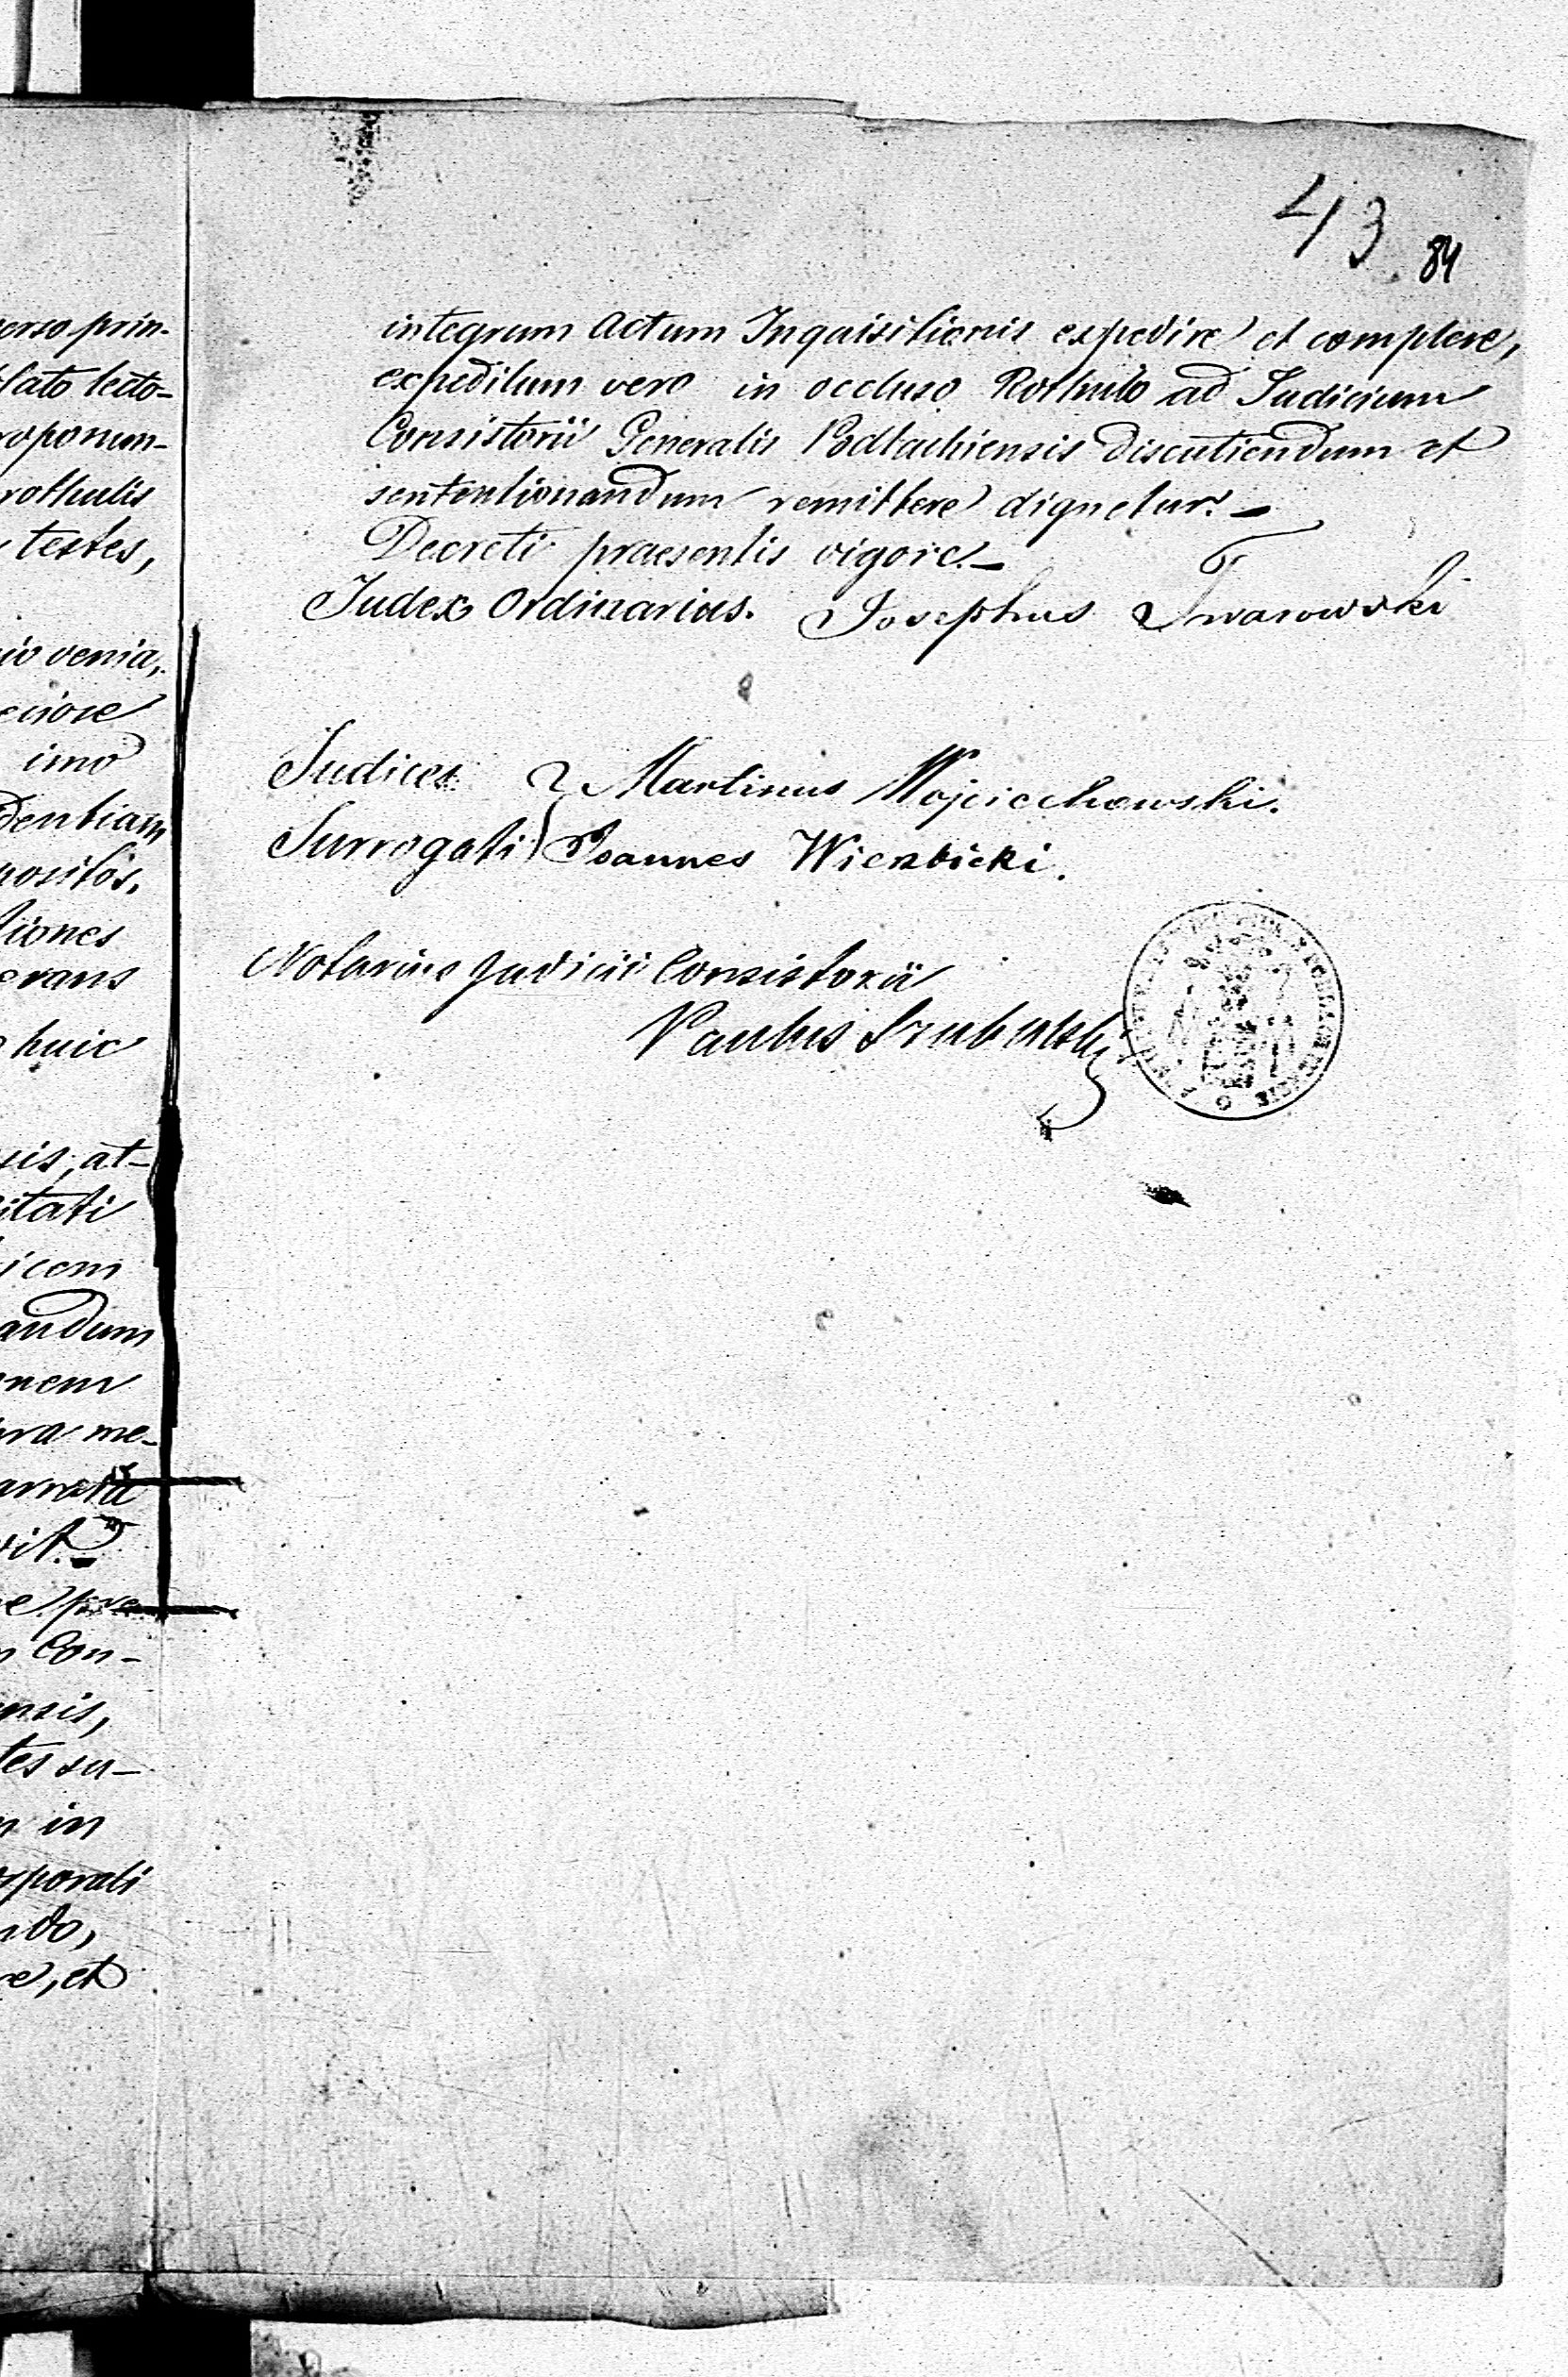 43
84
integrum Actum Inquisitionis expedire et complere,
expeditum vero in occluso Rothulo ad Judicium
Consistorii Generalis Podlachiensis discutiendum et
sententionandum remittere dignetur. –
Decreti praesentis vigore. –
Judex Ordinarius. Josephus Twarowski
Judices Martinus Wojciechowski.
Surrogati Joannes Wierzbicki.
Notarius Judicii Consistorii
Paulus
erso prin-
lato lecto-
roponun-
rothulis
testes,
venia,
ciore
imo
dentiam
positos,
tiones
erans
huic
sis, at-
itati
icem
andum
nem
me-
vit.
Con-
ensis,
tes su-
in
rporali
ndo,
re, et